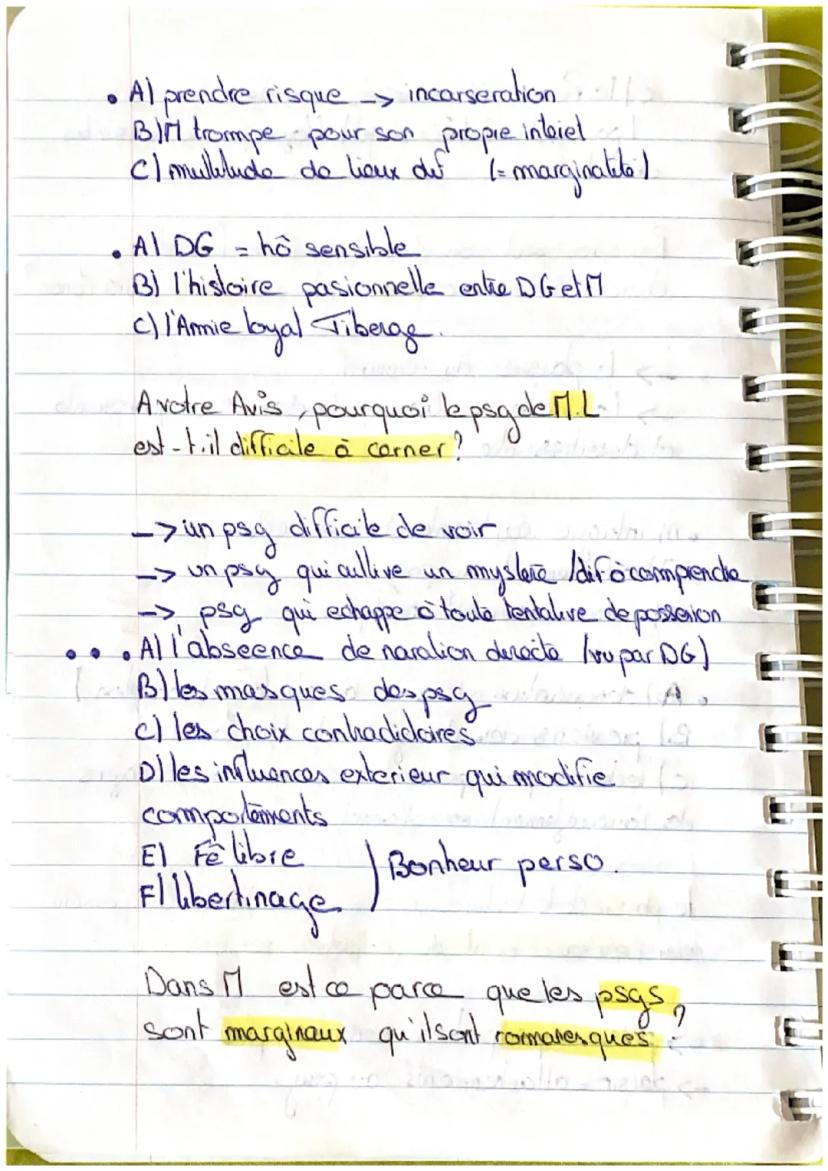 • A) prendre risque -> incarseration
B) M trompe pour son propre interiel
C) multitude de lieux def (= marginalité)
• A) DG = hô sensible
B) l'histoire pasionnelle entre DG et M
C) l'Amie loyal Tiberge.
A votre Avis, pourquoi le psg de M.L
est-t-il difficile à cerner ?
-> un psg difficile de voir
-> un psg qui cultive un mystere / dif à comprendre
-> psg qui echappe à toute tentative de possession
• • • A) l'abseence de naration directe (vu par DG)
B) les masques des psg
C) les choix contradictoires
D) les influences exterieur qui modifie
comportements
E) Fê libre
F) libertinage
) Bonheur perso.
Dans M est ce parce que les psgs
sont marginaux qu'ils sont romanesques ?